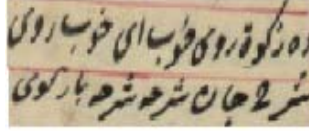 ده زکوة روی خوب ای خوب روی
شرح جان شرحه شرحه بازکوی